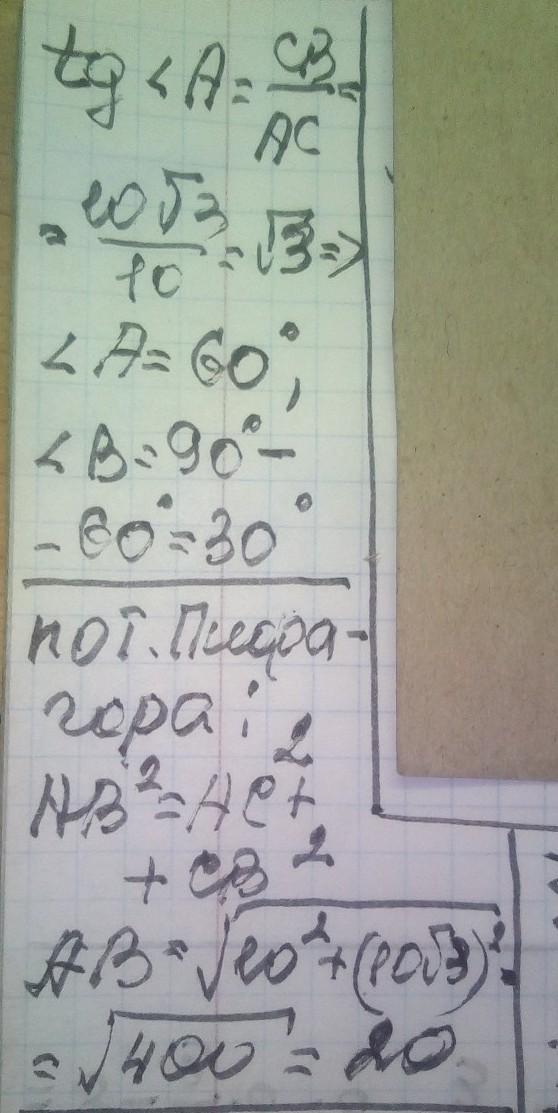 tg ∠A = CB/AC =
= 10√3/10 = √3 ⇒
∠A = 60°,
∠B = 90° -
- 60° = 30°
по т. Пифа-
гора:
AB² = AC² +
+ CB²
AB = √(10² + (10√3)²) =
= √400 = 20